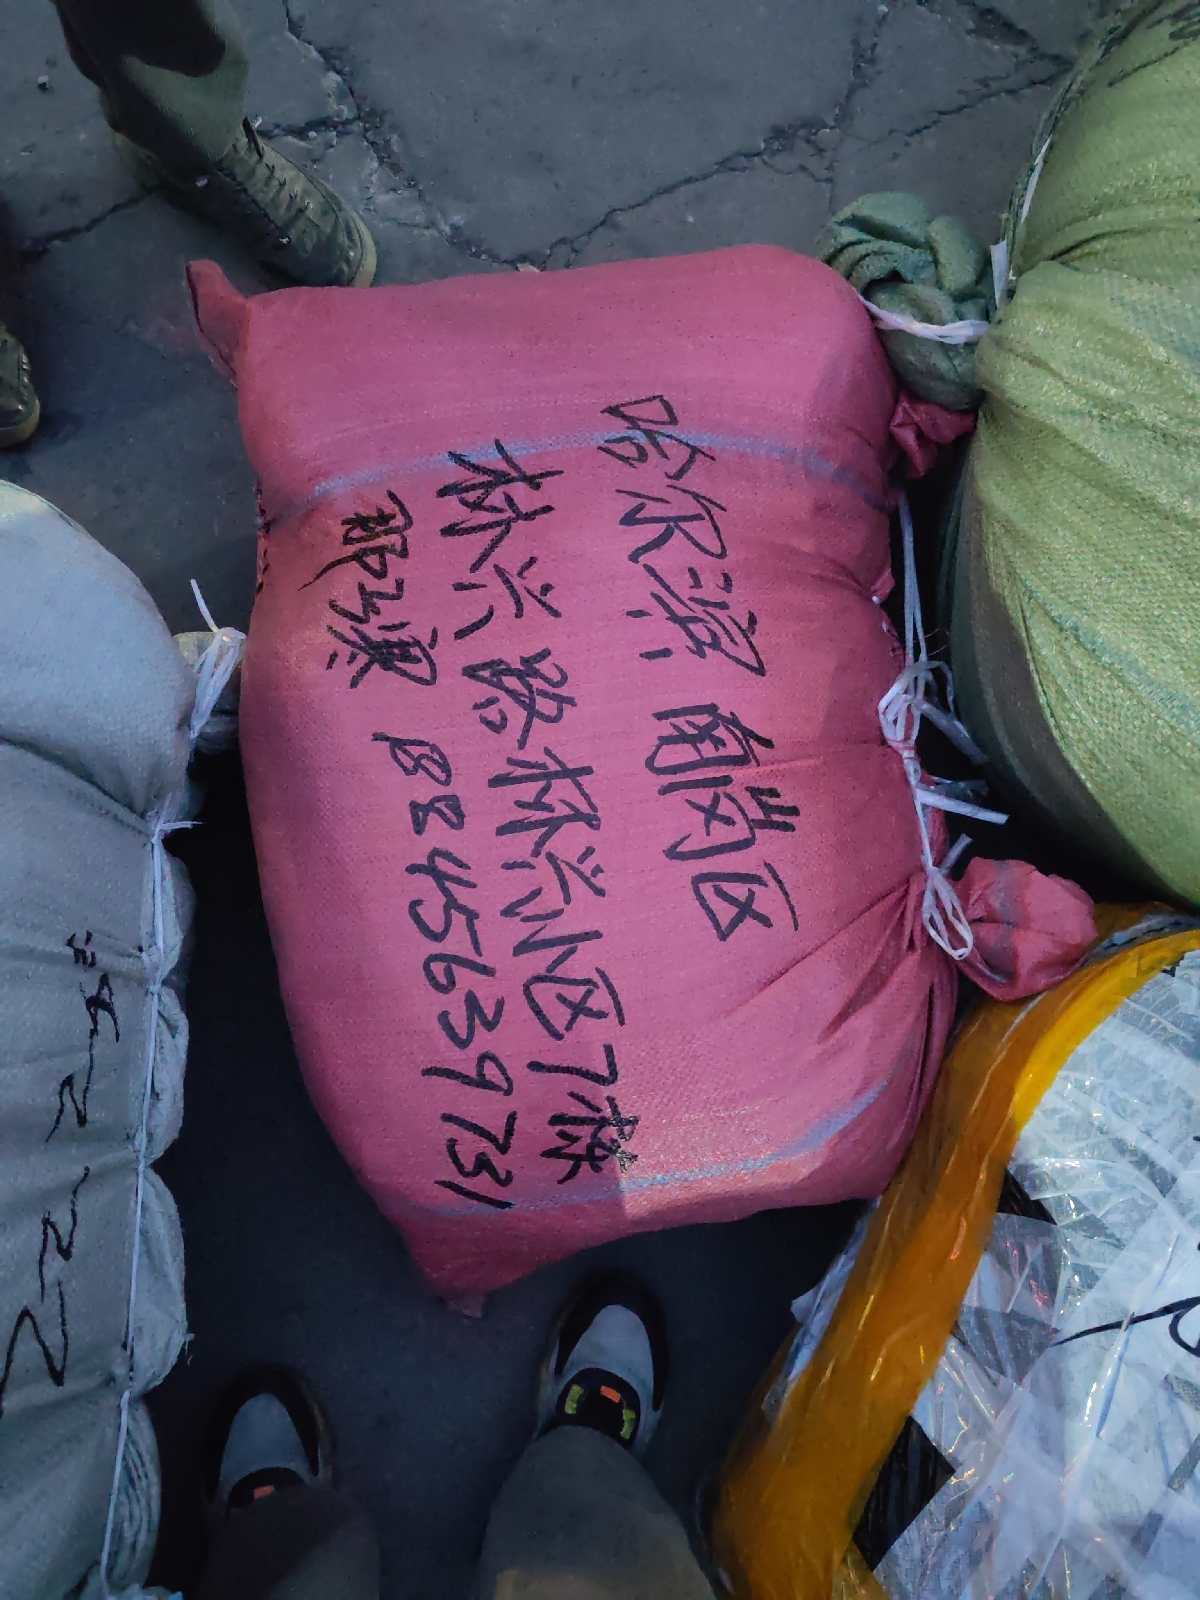 哈尔滨 南岗区
林兴路林兴小区7栋
那子寒 13845639731